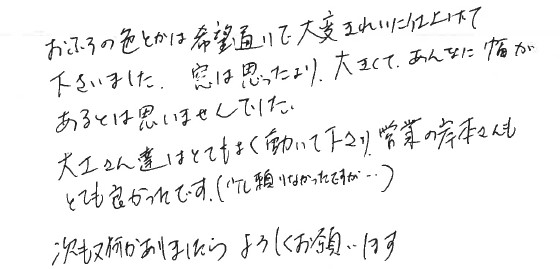 おふろの色とかは希望通りで大変きれいに仕上げて
下さいました。窓は思ったより、大きくて、あんなに幅が
あるとは思いませんでした。
大工さん達はとてもよく動いて下さり、営業の岸本さんも
とても良かったです。(少し頼りなかったですが…)
次も又何かありましたら よろしくお願いします